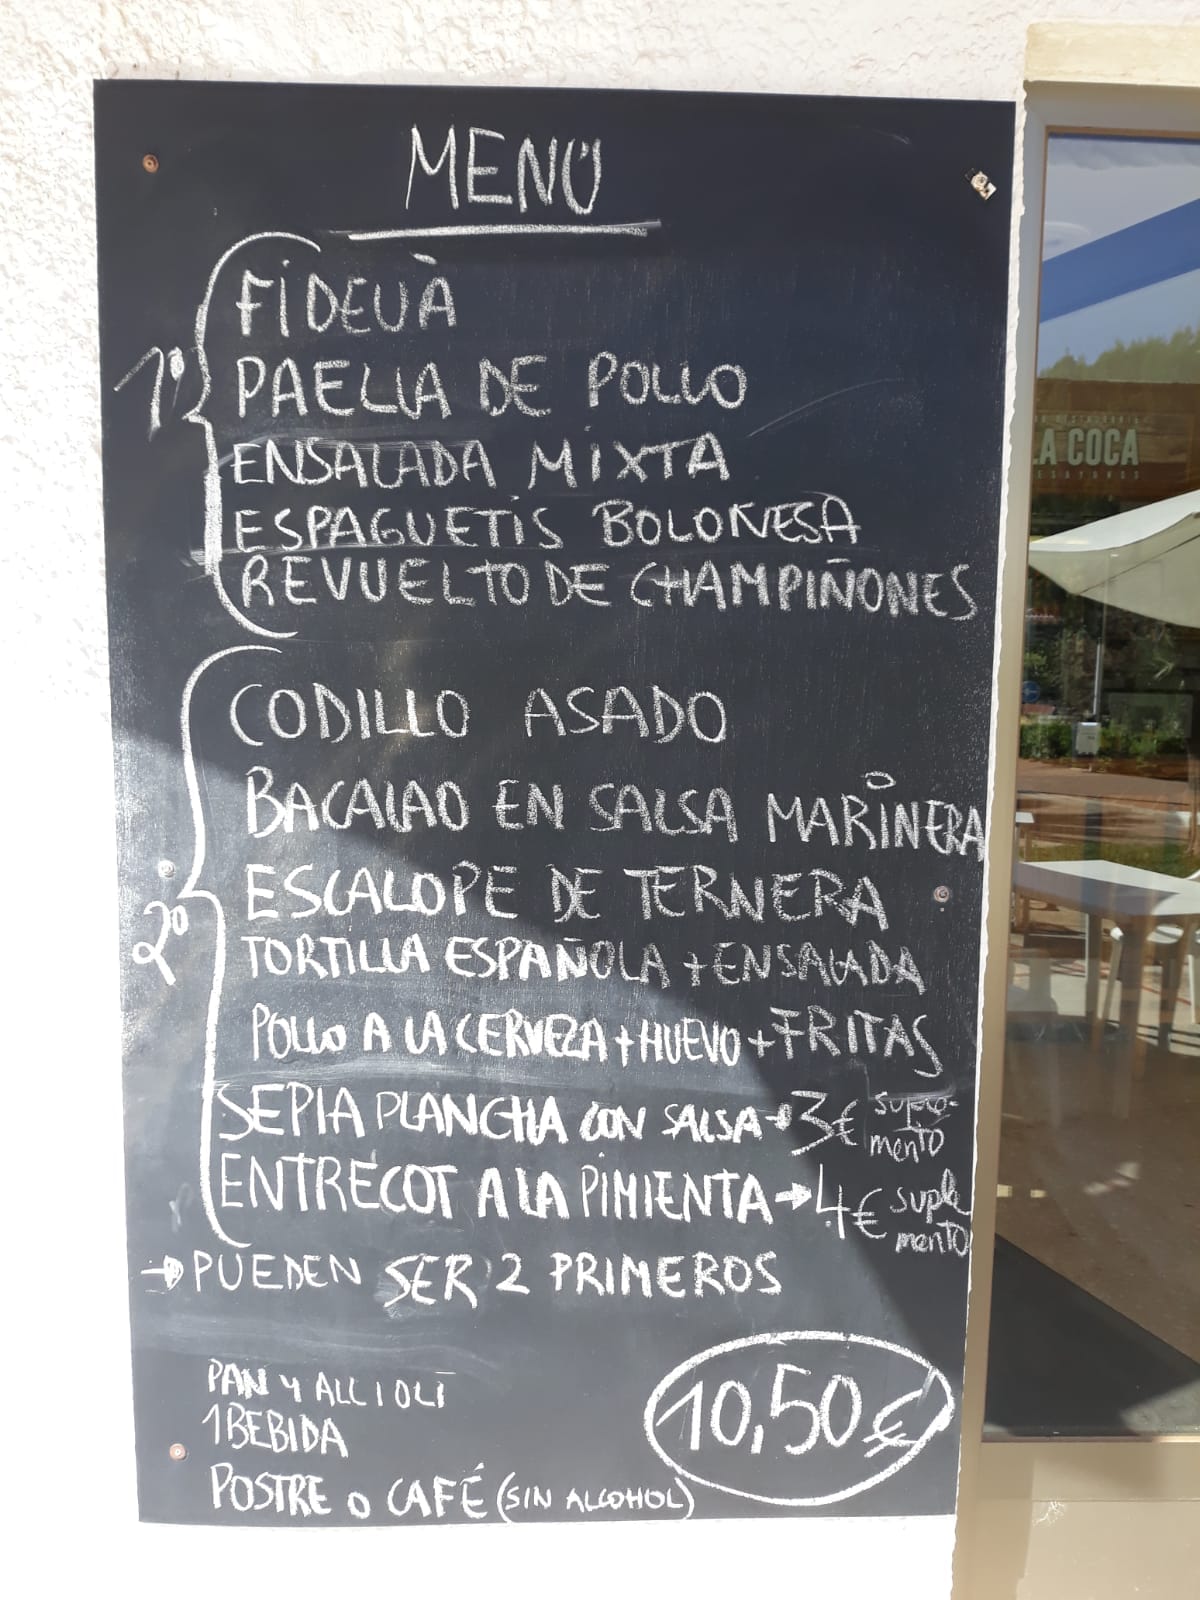 MENÚ
1º
FIDEUÀ
PAELLA DE POLLO
ENSALADA MIXTA
ESPAGUETIS BOLOÑESA
REVUELTO DE CHAMPIÑONES
2º
CODILLO ASADO
BACALAO EN SALSA MARINERA
ESCALOPE DE TERNERA
TORTILLA ESPAÑOLA + ENSALADA
POLLO A LA CERVEZA + HUEVO + FRITAS
SEPIA PLANCHA CON SALSA → 3€ suple-
mento
ENTRECOT A LA PIMIENTA → 4€ suple
mento
→ PUEDEN SER 2 PRIMEROS
PAN Y ALLIOLI
1 BEBIDA
POSTRE O CAFÉ (SIN ALCOHOL)
10,50€
LA COCA